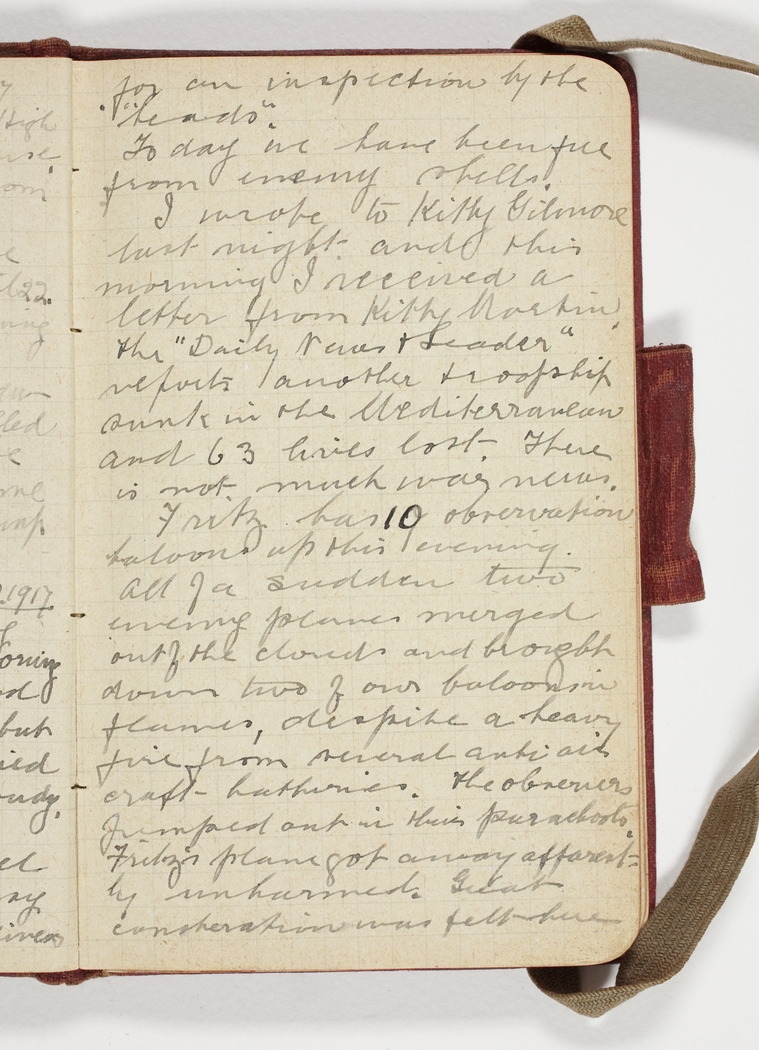 y
High
use.
om
e
22.
ing
led
e
me
1917
oring
but
ied
ady.
el
ay
for an inspection by the
"heads".
To day we have been free
from enemy shells.
I wrote to Kitty Gilmore
last night and this
morning I received a
letter from Kitty Martin.
The "Daily News & Leader"
reports another troopship
sunk in the Mediterranean
and 63 lives lost. There
is not much war news.
Fritz has 10 observation
baloons up this evening.
All of a sudden two
enemy planes merged
out of the clouds and brought
down two of our baloons in
flames, despite a heavy
fire from several anti air
craft batteries. The observers
jumped out in their parachoots.
Fritz's plane got away apparent-
ly unharmed. Great
consteration was felt here